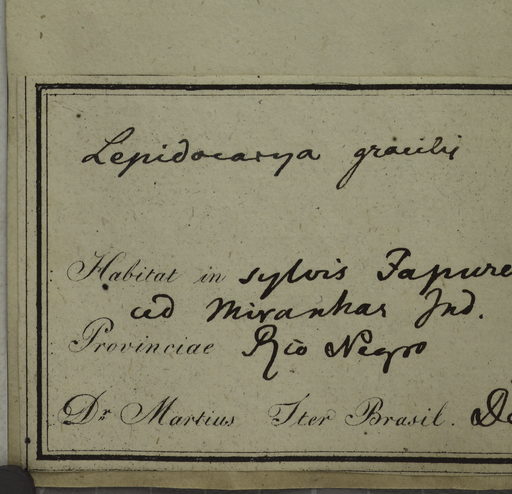 Lepidocarya gracilis
Habitat in sylvis Japure
ad Miranhas Ind.
Provinciae Rio Negro
Dr Martius Iter Brasil. De